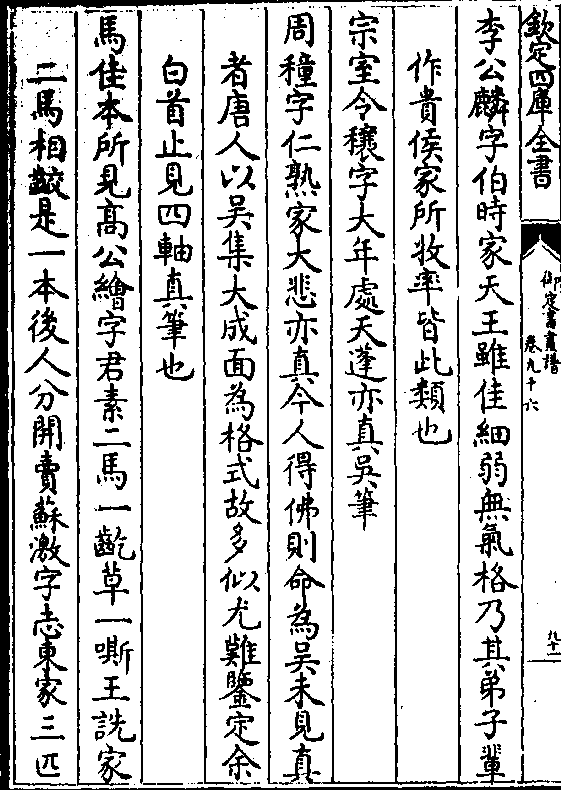 欽定四庫全書
御定書畫譜
卷九十六
九十一
李公麟字伯時家天王雖佳細弱無氣格乃其弟子輩
作貴侯家所收率皆此類也
宗室令穰字大年處天蓬亦真吳筆
周穜字仁熟家大悲亦真今人得佛則命為吳未見真
者唐人以吳集大成面為格式故多似尤難鑒定余
白首止見四軸真筆也
馬佳本所見髙公繪字君素二馬一齕草一嘶王詵家
二馬相齩是一本後人分開賣蘇激字志東家三匹